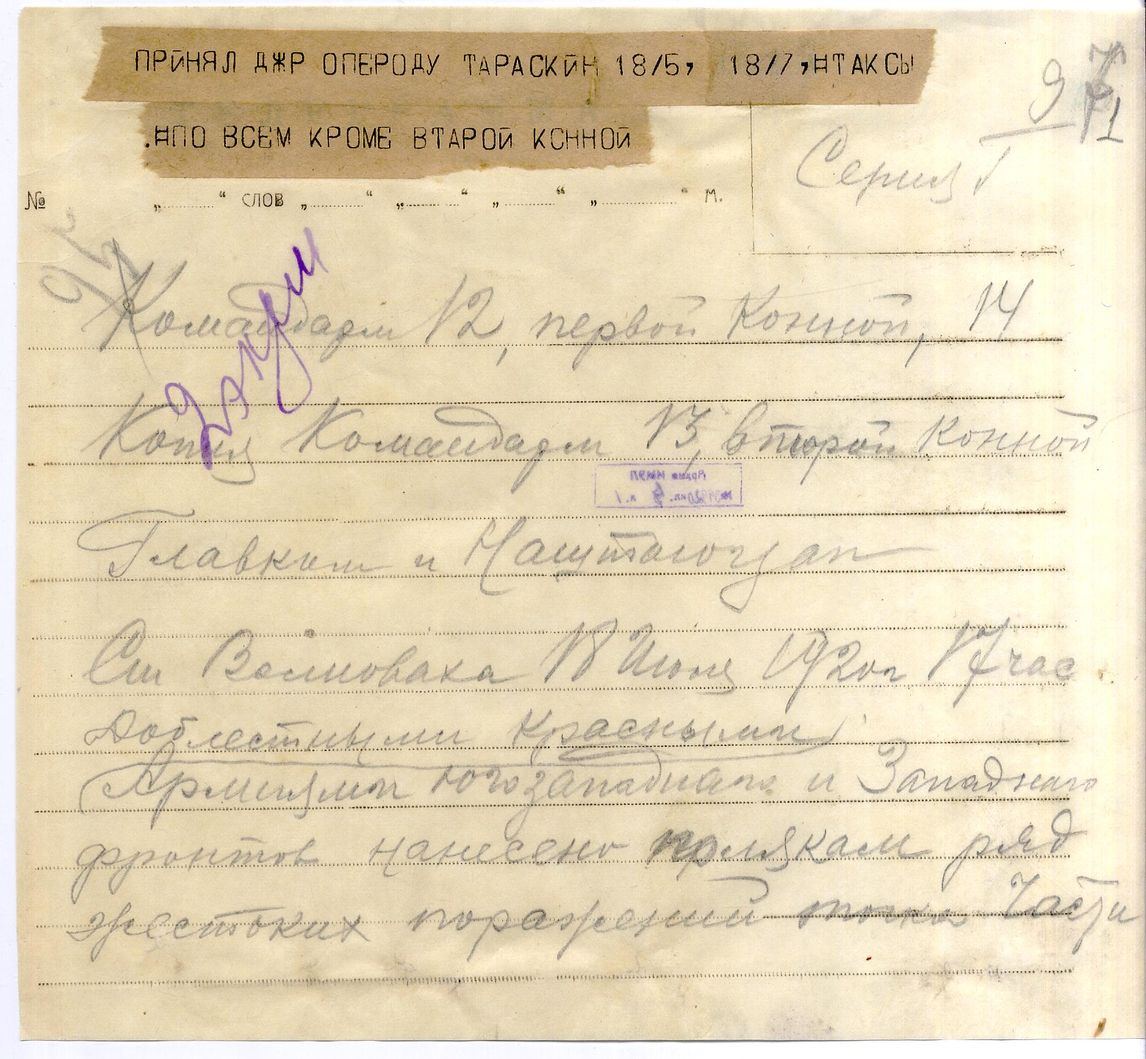 ПРИНЯЛ ДЖР ОПЕРОДУ ТАРАСКИН 18/5, 18/7,НТАКСЫ
.НПО ВСЕМ КРОМЕ ВТАРОЙ КСННОЙ
9
71
Серия Г
№ „ “ слов „ “ „ “ „ “ „ “ м.
95
Командарм 12, первой Конной, 14
Копия Командарм 13, второй Конной
Главком и Наштаюгзап
Ст Волноваха 18 Июля 1920г 17 час
Доблестными красными
Армиями югозападного и Западного
фронтов нанесено полякам ряд
жестоких поражений точка Части